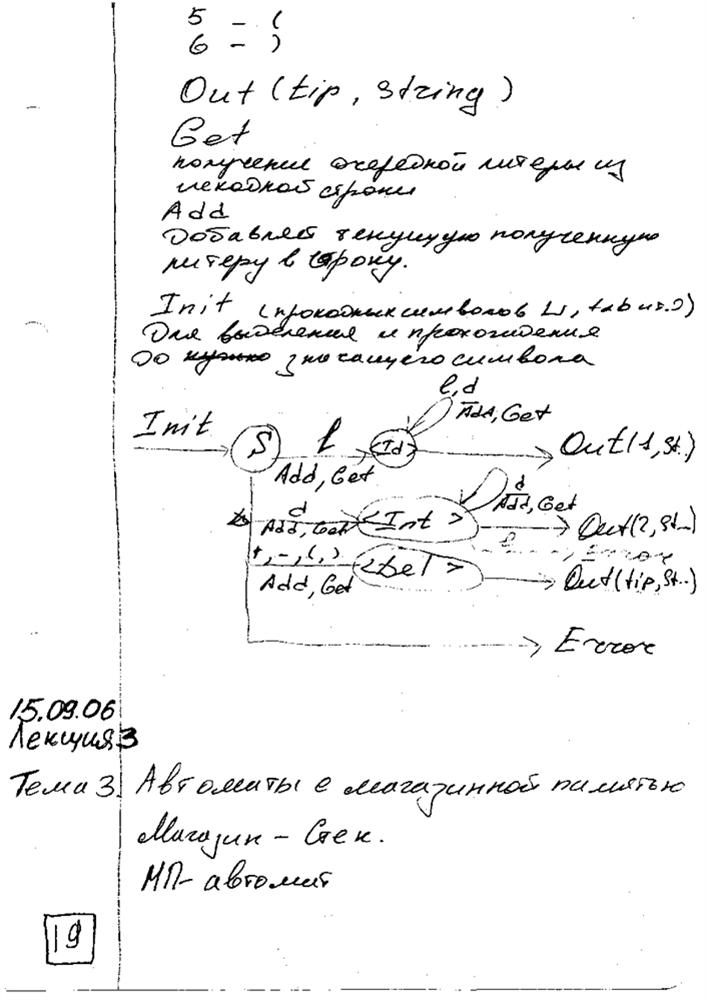 5 – (
6 – )
Out (tip, String)
Get
получение очередной литеры из
исходной строки
Add
Добавляет текущую полученную
литеру в строку.
Init (проходных символов ⊔, tab и т.д)
Для выделения и прохождения
до значащего символа
l, d
Add, Get
Init S l <Id> Out(1, St..)
Add, Get
d
Add, Get
d <Int> Out(2, St..)
Add, Get
l Error
+, -, (, ) <Del> Out(tip, St..)
Add, Get
Error
15.09.06
Лекция 3
Тема 3. Автоматы с магазинной памятью
Магазин – Стек.
МП-автомат
19